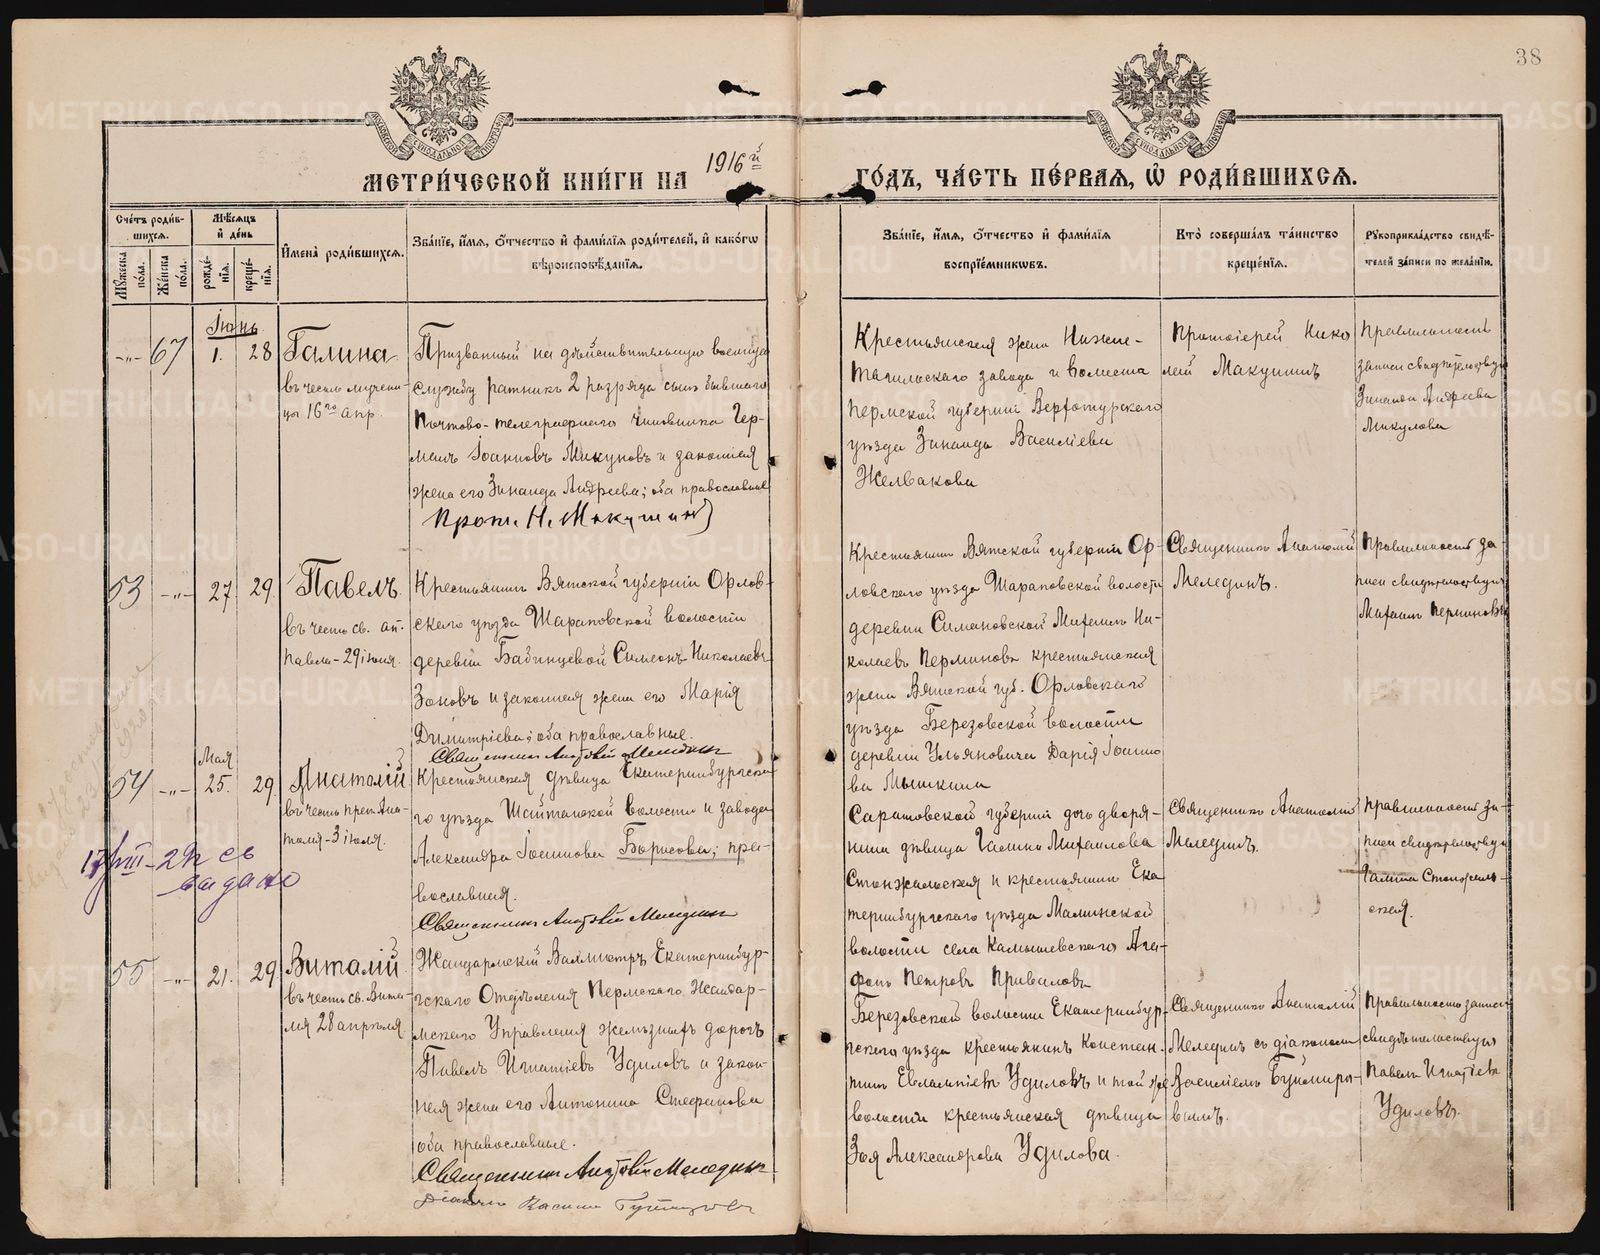 38
1916й
МЕТРИ́ЧЕСКОЙ КНИ́ГИ НА
ГО́ДЪ, ЧА́СТЬ ПЕ́РВАЯ, Ѡ҆ РОДИ́ВШИХСЯ.
Сче́тъ роди́в-
шихся.
Мѣ́сяцъ
и҆ де́нь
Мꙋ́жеска
по́ла.
Же́нска
по́ла.
рожде́-
нїя.
креще́-
нїя.
И҆мена̀ роди́вшихся.
Зва́нїе, и҆́мя, ѻ҆́тчество и҆ фами́лїя роди́телей, и҆ како́гѡ
вѣроисповѣ́данїя.
Зва́нїе, и҆́мя, ѻ҆́тчество и҆ фами́лїя
воспрїе́мникѡвъ.
Кто̀ соверша́лъ та́инство
креще́нїя.
Рꙋкоприкла́дство свидѣ́-
телей за́писи по жела́нїю.
Іюнь.
-„- 67 1. 28
Галина
въ честь мучени-
цы 16го апр.
Призванный на дѣйствительную военную
службу ратникъ 2 разряда сынъ бывшаго
Почтово-телеграфнаго чиновника Гер-
манъ Іоанновъ Микуловъ и законная
жена его Зинаида Андреева; оба православные
Прот. Н. Макушинъ
Крестьянская жена Нижне-
тагильскаго завода и волости
Пермской губерніи Верхотурскаго
уѣзда Зинаида Василіева
Желвакова
Протоіерей Нико
лай Макушинъ
Правильность
записи свидѣтельствую
Зинаида Андреева
Микулова
53 -„- 27 29
Павелъ.
въ честь св. ап.
Павла - 29 іюня.
Крестьянинъ Вятской губерніи Орлов-
скаго уѣзда Шараповской волости
деревни Бабинцевой Симеонъ Николаевъ
Зоновъ и законная жена его Марія
Димитріева; оба православные.
Священникъ Анатолій Меледин
Крестьянинъ Вятской губерніи Ор-
ловскаго уѣзда Шараповской волости
деревни Симановской Михаилъ Ни-
колаевъ Перминовъ крестьянская
жена Вятской губ. Орловскаго
уѣзда Березовской волости
деревни Ульяновичи Дарія Іоанно
ва Мышкина
Священникъ Анатолій
Мелединъ.
Правильность за-
писи свидѣтельствую
Михаилъ Перминовъ
Мая
54 -„- 25. 29
Анатолій
въ честь преп. Ана-
толія - 3 іюля.
Крестьянская дѣвица Екатеринбургска-
го уѣзда Шайтанской волости и завода
Александра Іоаннова Борисова; пра-
вославная.
Священникъ Анатолій Меледин
Саратовской губерніи дочь дворя-
нина дѣвица Галина Михаилова
Стонжальская и крестьянинъ Ека
теринбургскаго уѣзда Маминской
волости села Камышевскаго Ага-
фонъ Петровъ Приваловъ
Священникъ Анатолій
Мелединъ.
Правильность за-
писи свидѣтельствую
Галина Стонжаль-
ская.
17/VIII - 29 г св
выдано
55 -„- 21. 29
Виталій
въ честь св. Вита-
лія 28 апрѣля
Жандармскій Вахмистръ Екатеринбур-
гскаго Отдѣленія Пермскаго Жандар-
мскаго Управленія желѣзныхъ дорогъ
Павелъ Игнатіевъ Удиловъ и закон-
ная жена его Антонина Стефанова
оба православные.
Священникъ Анатолій Меледин
Діаконъ Василий
Березовской волости Екатеринбур-
гскаго уѣзда крестьянинъ Констан-
тинъ Евлампіевъ Удиловъ и той же
волости крестьянская дѣвица
Зоя Александрова Удилова.
Священникъ Анатолій
Мелединъ съ діакономъ
Василіемъ
Правильность записи
свидѣтельствую
Павелъ Игнатіевъ
Удиловъ.
METRIKI.GASO-URAL.RU